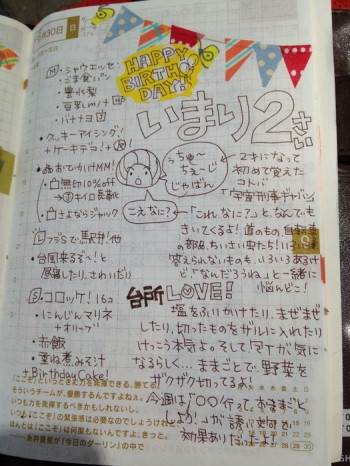 月30日 日
HAPPY
BIRTHDAY!
いまり2さい
・シャウエッセン
・ごま食パン
・豊水梨
・豆乳
・バナナヨ
・クッキーアイシング!
+ケーキデコ!
おでかけMM!
・白無印10%off
→キイロ長靴
・白さよならジャック
うちゅ〜
ちぇ〜じ
じゃばん
こえなに?
2才になって
初めて覚えた
コトバ
「宇宙刑事ギャバン」
「これなに?」と、なんでも
きいてくるよ!道のもの、自転車
の部品、ちいさい虫だち!いろいろ
答えられないものも、いろいろあるけ
ど、「なんだろうね」と一緒に
悩んどこ!
L フジSで駅弁!他
・台風来るぞ〜!と
昼寝したり、さわいだり
S ココロッケ! 16コ
・にんじんマリネ
+オリーブ
・赤飯
・重ね煮みそ汁
+Birthday Cake!
台所LOVE!
塩をふりかけたり、まぜまぜ
したり、切ったものをザルに入れたり
けっこう本気よ。そして「包丁が気に
なるらしく…ままごとで野菜を
ザクザク切ってるよ。
今週は「〇〇行って、おままごと
しよか!」が誘い文句で
効果ありだったよ!
「ここぞ」というとき力を発揮できる、勝てる
そういうチームが、優勝するんですよねぇ。
いつも力を発揮するべきかもしれないし、
いつも「ここぞ」の緊張感は必要なのでしょうけれど
ほんとは「ここぞ」は何度もないんですよ、きっと。
──糸井重里が「今日のダーリン」の中で